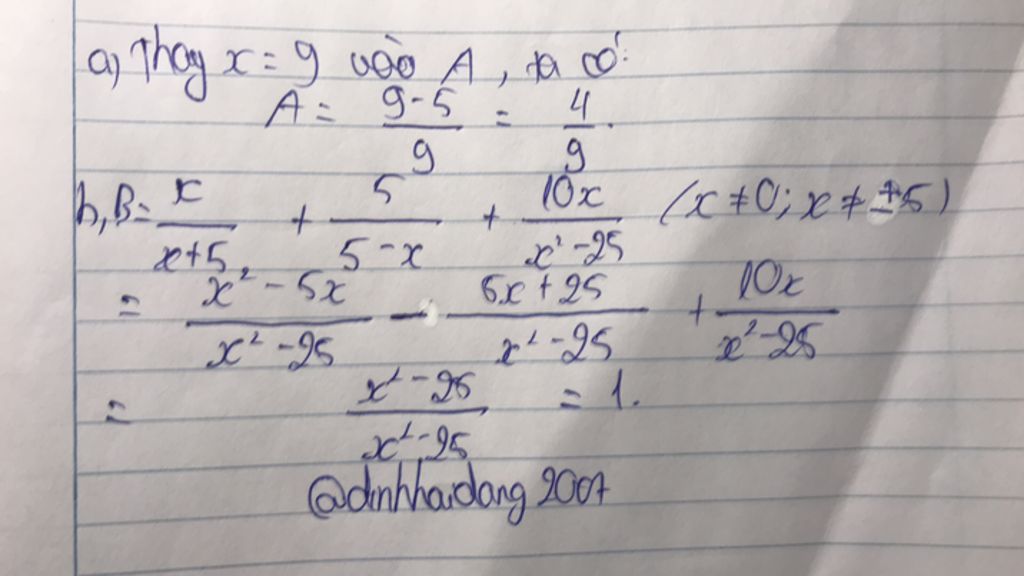 a, Thay x = 9 vào A, ta có:
A = \frac{9-5}{9} = \frac{4}{9}.
b, B = \frac{x}{x+5} + \frac{5}{5-x} + \frac{10x}{x²-25} (x ≠ 0; x ≠ ±5)
= \frac{x²-5x}{x²-25} - \frac{5x+25}{x²-25} + \frac{10x}{x²-25}
= \frac{x²-25}{x²-25} = 1.
@dinhhaidang2007